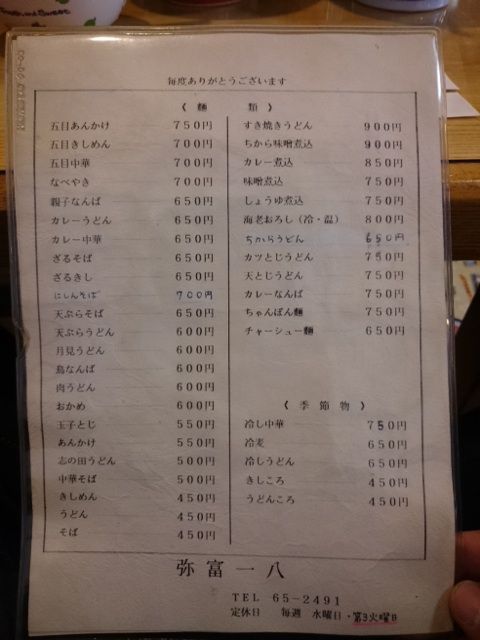 毎度ありがとうございます
《麺類》
五目あんかけ 750円
五目きしめん 700円
五目中華 700円
なべやき 700円
親子なんば 650円
カレーうどん 650円
カレー中華 650円
ざるそば 650円
ざるきし 650円
にしんそば 700円
天ぷらそば 650円
天ぷらうどん 600円
月見うどん 600円
鳥なんば 600円
肉うどん 600円
おかめ 600円
玉子とじ 550円
あんかけ 550円
志の田うどん 500円
中華そば 500円
きしめん 450円
うどん 450円
そば 450円
すき焼きうどん 900円
ちから味噌煮込 900円
カレー煮込 850円
味噌煮込 750円
しょうゆ煮込 750円
海老おろし(冷・温) 800円
ちからうどん 650円
カツとじうどん 750円
天とじうどん 750円
カレーなんば 750円
ちゃんぽん麺 750円
チャーシュー麺 650円
《季節物》
冷し中華 750円
冷麦 650円
冷しうどん 650円
きしころ 450円
うどんころ 450円
弥富一八
TEL 65-2491
定休日 毎週 水曜日・第3火曜日